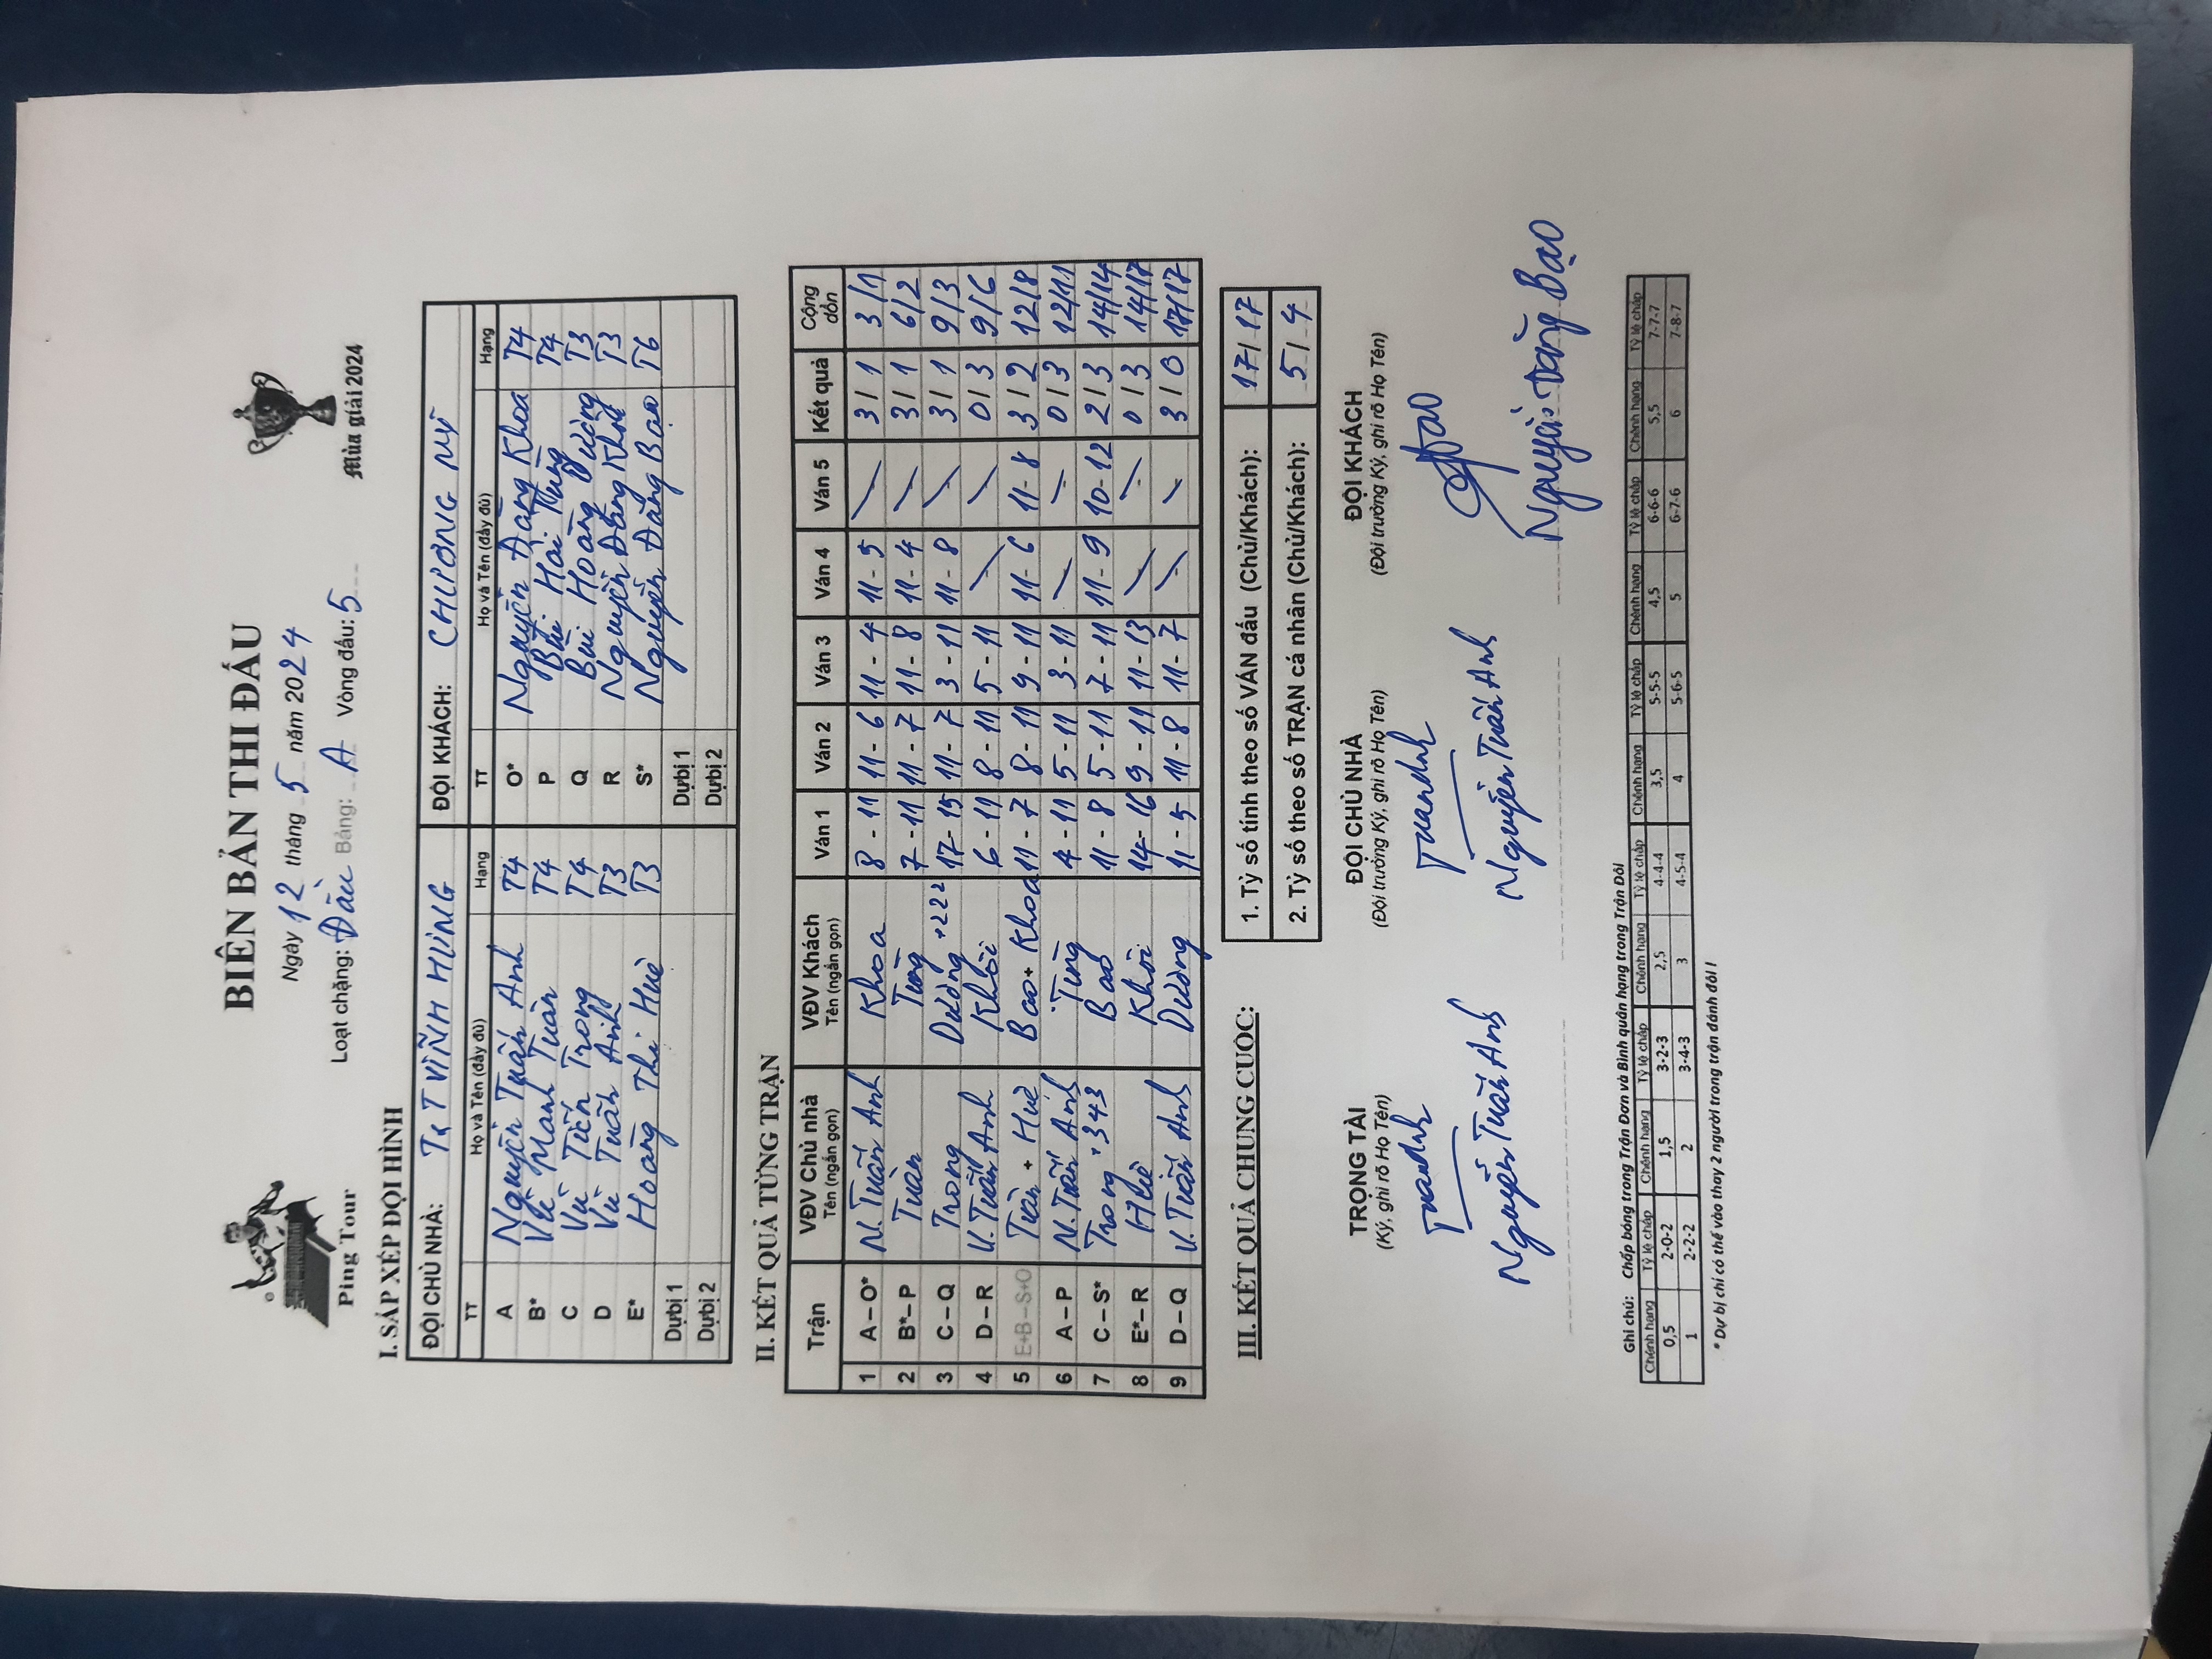 BIÊN BẢN THI ĐẤU
Ngày 12 tháng 5 năm 2024
Loạt chặng: Đầu Bảng: A Vòng đấu: 5
Ping Tour
Mùa giải 2024
I. SẮP XẾP ĐỘI HÌNH
ĐỘI CHỦ NHÀ: TT VĨNH HƯNG ĐỘI KHÁCH: CHƯƠNG MỸ
TT Họ và Tên (đầy đủ) Hạng TT Họ và Tên (đầy đủ) Hạng
A Nguyễn Tuấn Anh T4 O* Nguyễn Đăng Khoa T4
B* Vũ Mạnh Tuân T4 P Bùi Hải Tùng T4
C Vũ Tiến Trọng T4 Q Bùi Hoàng Dương T3
D Vũ Tuấn Anh T3 R Nguyễn Đăng Khôi T3
E* Hoàng Thị Huê T3 S* Nguyễn Đăng Bạo T6
Dự bị 1 Dự bị 1
Dự bị 2 Dự bị 2
II. KẾT QUẢ TỪNG TRẬN
Trận VĐV Chủ nhà Tên (ngắn gọn) VĐV Khách Tên (ngắn gọn) Ván 1 Ván 2 Ván 3 Ván 4 Ván 5 Kết quả Cộng dồn
1 A – O* N. Tuấn Anh Khoa 8 - 11 11 - 6 11 - 4 11 - 5 3 / 1 3/1
2 B*– P Tuân Tùng 7 - 11 11 - 7 11 - 8 11 - 4 3 / 1 6/2
3 C – Q Trọng Dương +222 17 - 15 11 - 7 3 - 11 11 - 8 3 / 1 9/3
4 D – R V. Tuấn Anh Khôi 6 - 11 8 - 11 5 - 11 0 / 3 9/6
5 E+B – S+O Tuân + Huê Bạo + Khoa 11 - 7 8 - 11 9 - 11 11 - 6 11 - 8 3 / 2 12/8
6 A – P N. Tuấn Anh Tùng 4 - 11 5 - 11 3 - 11 0 / 3 12/11
7 C – S* Trọng +343 Bạo 11 - 8 5 - 11 7 - 11 11 - 9 10-12 2 / 3 14/14
8 E*– R Huê Khôi 14 - 16 9 - 11 11 - 13 0 / 3 14/17
9 D – Q V. Tuấn Anh Dương 11 - 5 11 - 8 11 - 7 3 / 0 17/17
III. KẾT QUẢ CHUNG CUỘC:
1. Tỷ số tính theo số VÁN đấu (Chủ/Khách): 17/17
2. Tỷ số theo số TRẬN cá nhân (Chủ/Khách): 5/4
TRỌNG TÀI ĐỘI CHỦ NHÀ ĐỘI KHÁCH
(Ký, ghi rõ Họ Tên) (Đội trưởng Ký, ghi rõ Họ Tên) (Đội trưởng Ký, ghi rõ Họ Tên)
Tuananh Tuananh
Nguyễn Tuấn Anh Nguyễn Tuấn Anh Nguyễn Đăng Bạo
Ghi chú: Chấp bóng trong Trận Đơn và Bình quân hạng trong Trận Đôi
Chênh hạng Tỷ lệ chấp Chênh hạng Tỷ lệ chấp Chênh hạng Tỷ lệ chấp Chênh hạng Tỷ lệ chấp Chênh hạng Tỷ lệ chấp Chênh hạng Tỷ lệ chấp
0,5 2-0-2 1,5 3-2-3 2,5 4-4-4 3,5 5-5-5 4,5 6-6-6 5,5 7-7-7
1 2-2-2 2 3-4-3 3 4-5-4 4 5-6-5 5 6-7-6 6 7-8-7
* Dự bị chỉ có thể vào thay 2 người trong trận đánh đôi !